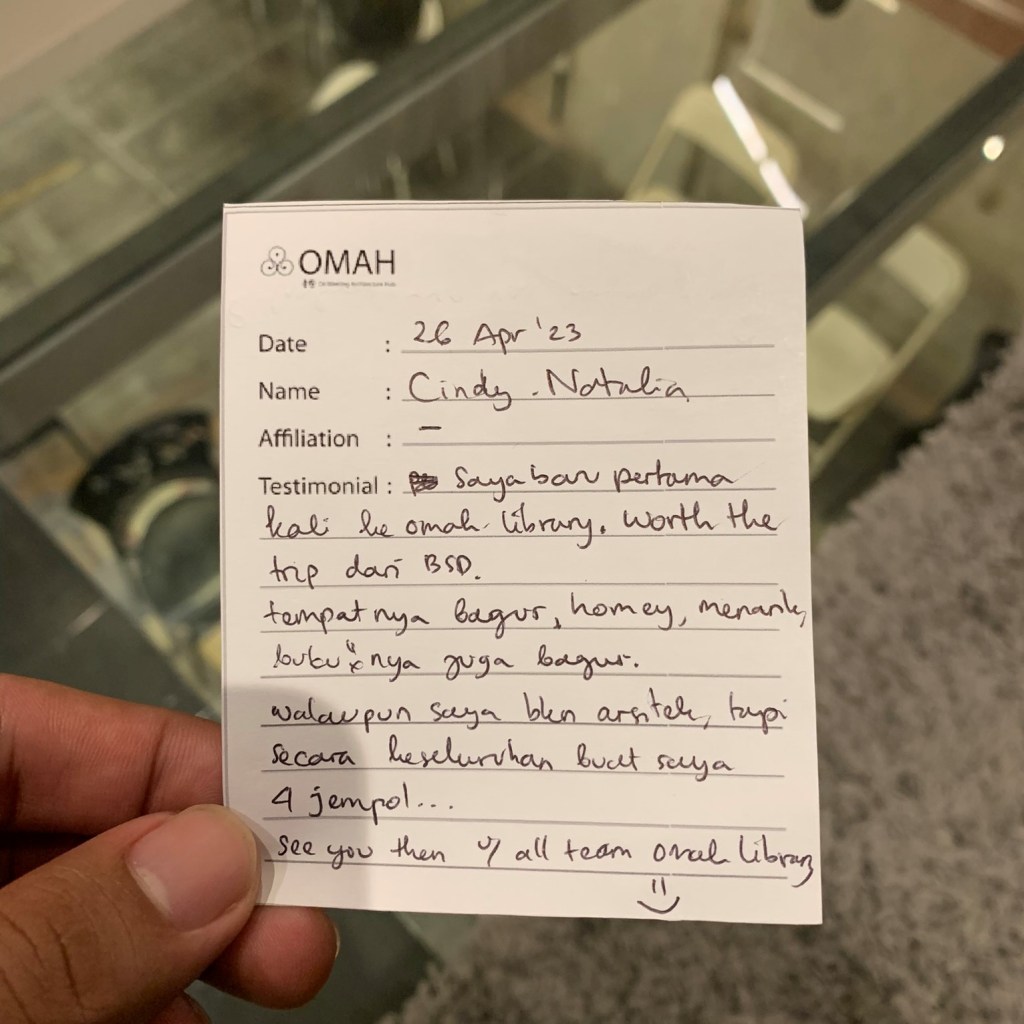 OMAH
Date : 26 Apr '23
Name : Cindy . Natalia
Affiliation : –
Testimonial : Saya baru pertama
kali ke omah library. Worth the
trip dari BSD.
tempatnya bagus, homey, menarik,
buku"nya juga bagus.
walaupun saya bkn arsitek, tapi
secara keseluruhan buat saya
4 jempol...
See you then w/ all team omah library